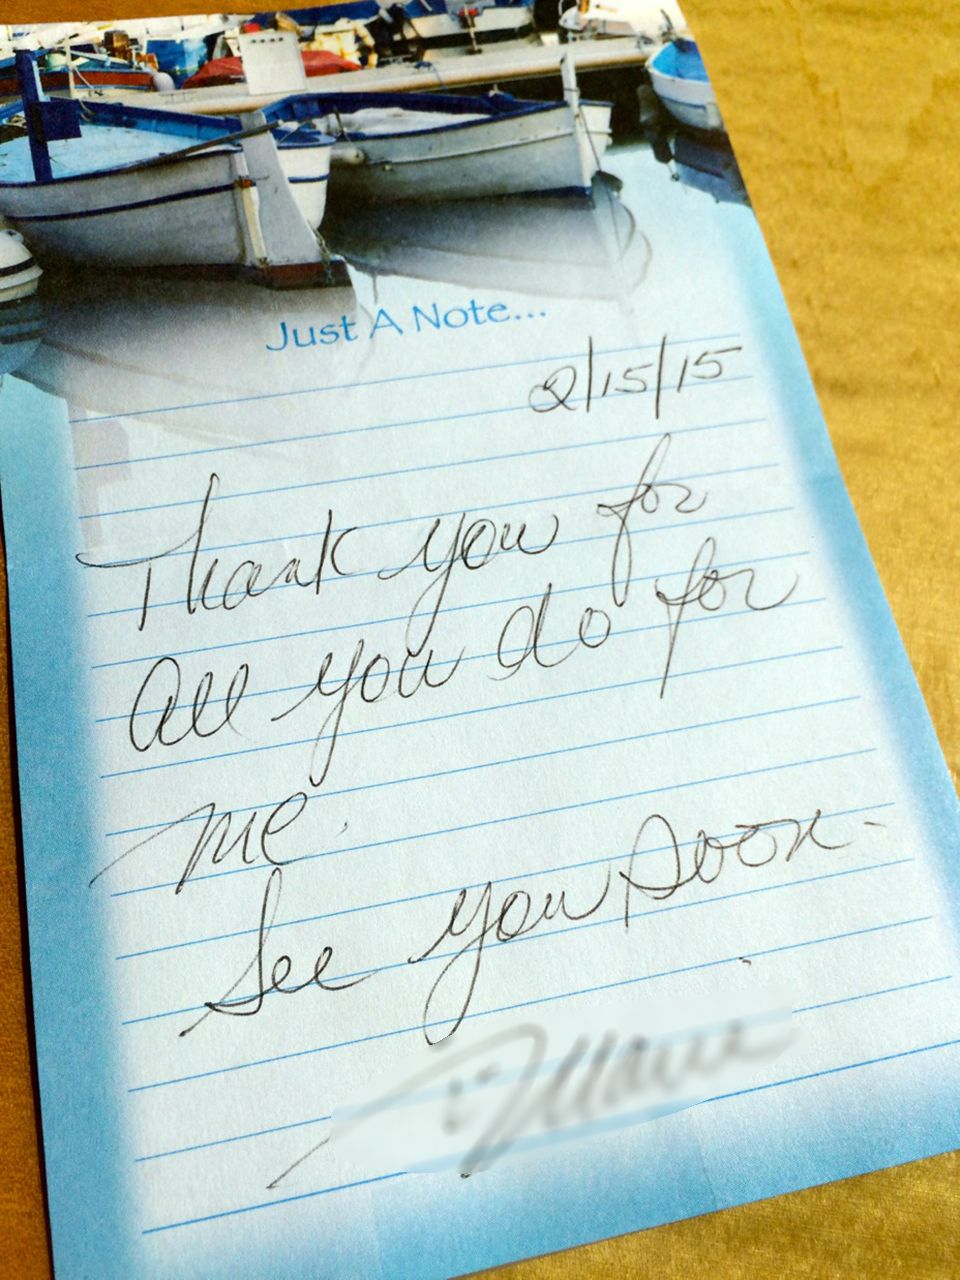 Just A Note...
2/15/15
Thank you for
All you do for
me.
See you soon-